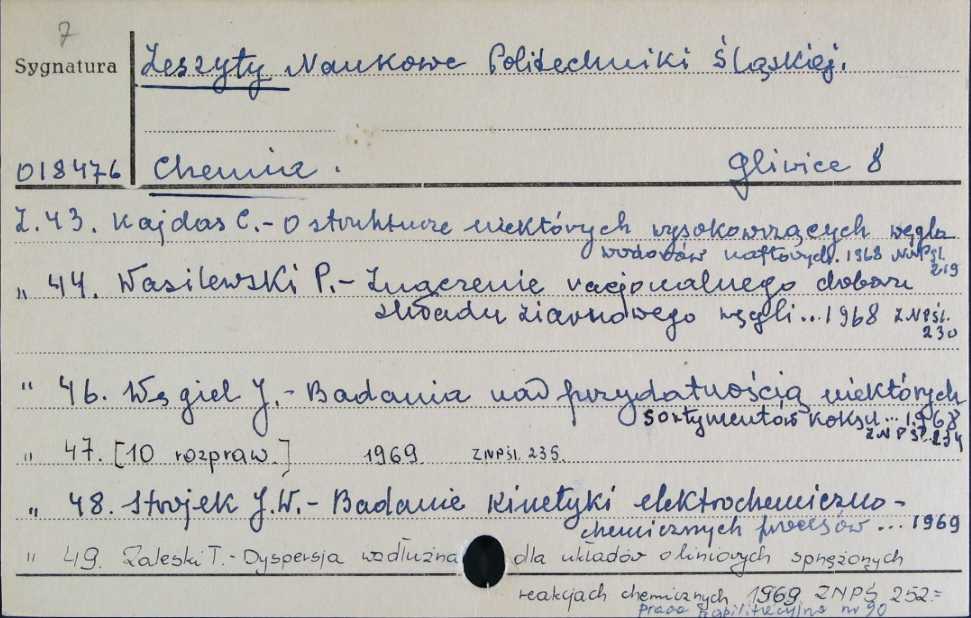 7
Sygnatura Zeszyty Naukowe Politechniki Śląskiej.
018476 Chemia. Gliwice 8
Z. 43. Kajdas C. - O strukturze niektórych wysokowrzących węglo
wodorów naftowych. 1968 ZNPŚl.
219
„ 44. Wasilewski P. - Znaczenie racjonalnego doboru
składu ziarnowego węgli... 1968 ZNPŚl.
230
" 46. Węgiel J. - Badania nad przydatnością niektórych
sortymentów koksu... 1968
ZNPŚl. 234
" 47. [10 rozpraw.] 1969. ZNPŚl. 235.
„ 48. Strojek J.W. - Badanie kinetyki elektrochemiczno-
chemicznych procesów... 1969
" 49. Zaleski T. - Dyspersja wzdłużna dla układów o liniowych sprzężonych
reakcjach chemicznych 1969 ZNPŚ 252 =
praca habilitacyjna nr 90